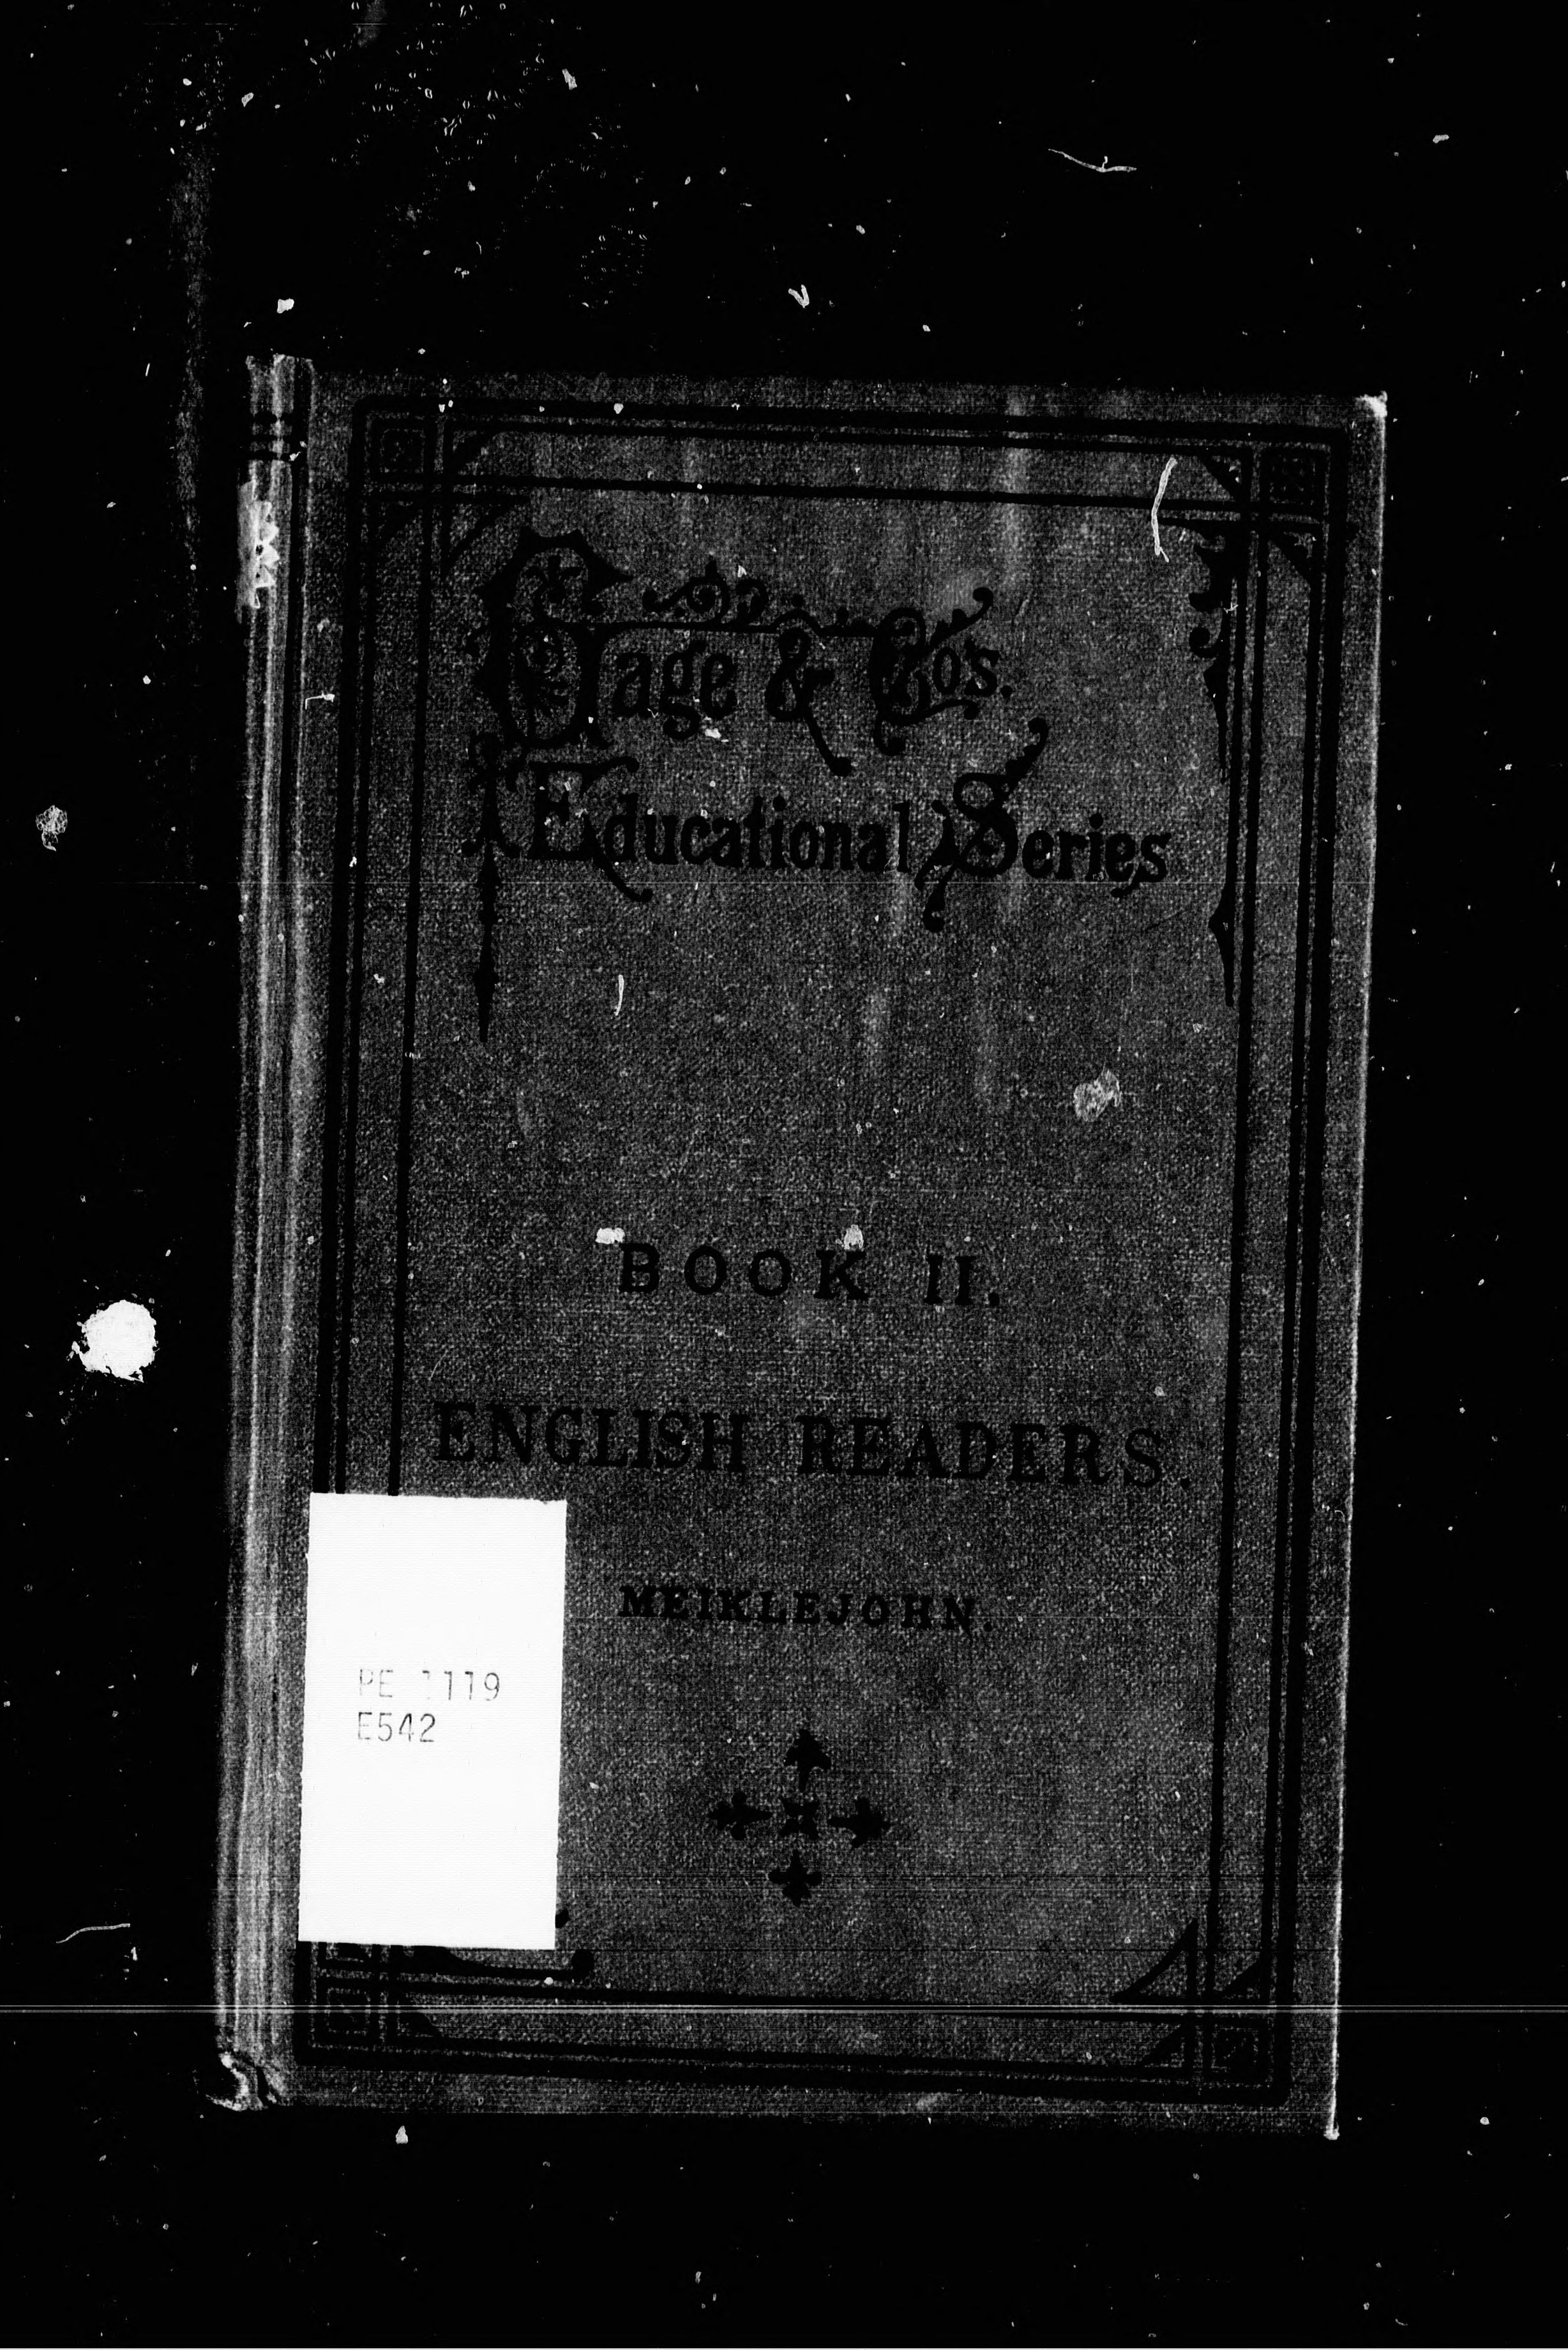 Gage & Co's.
Educational Series
BOOK II.
ENGLISH READERS.
MEIKLEJOHN.
PE 1119
E542